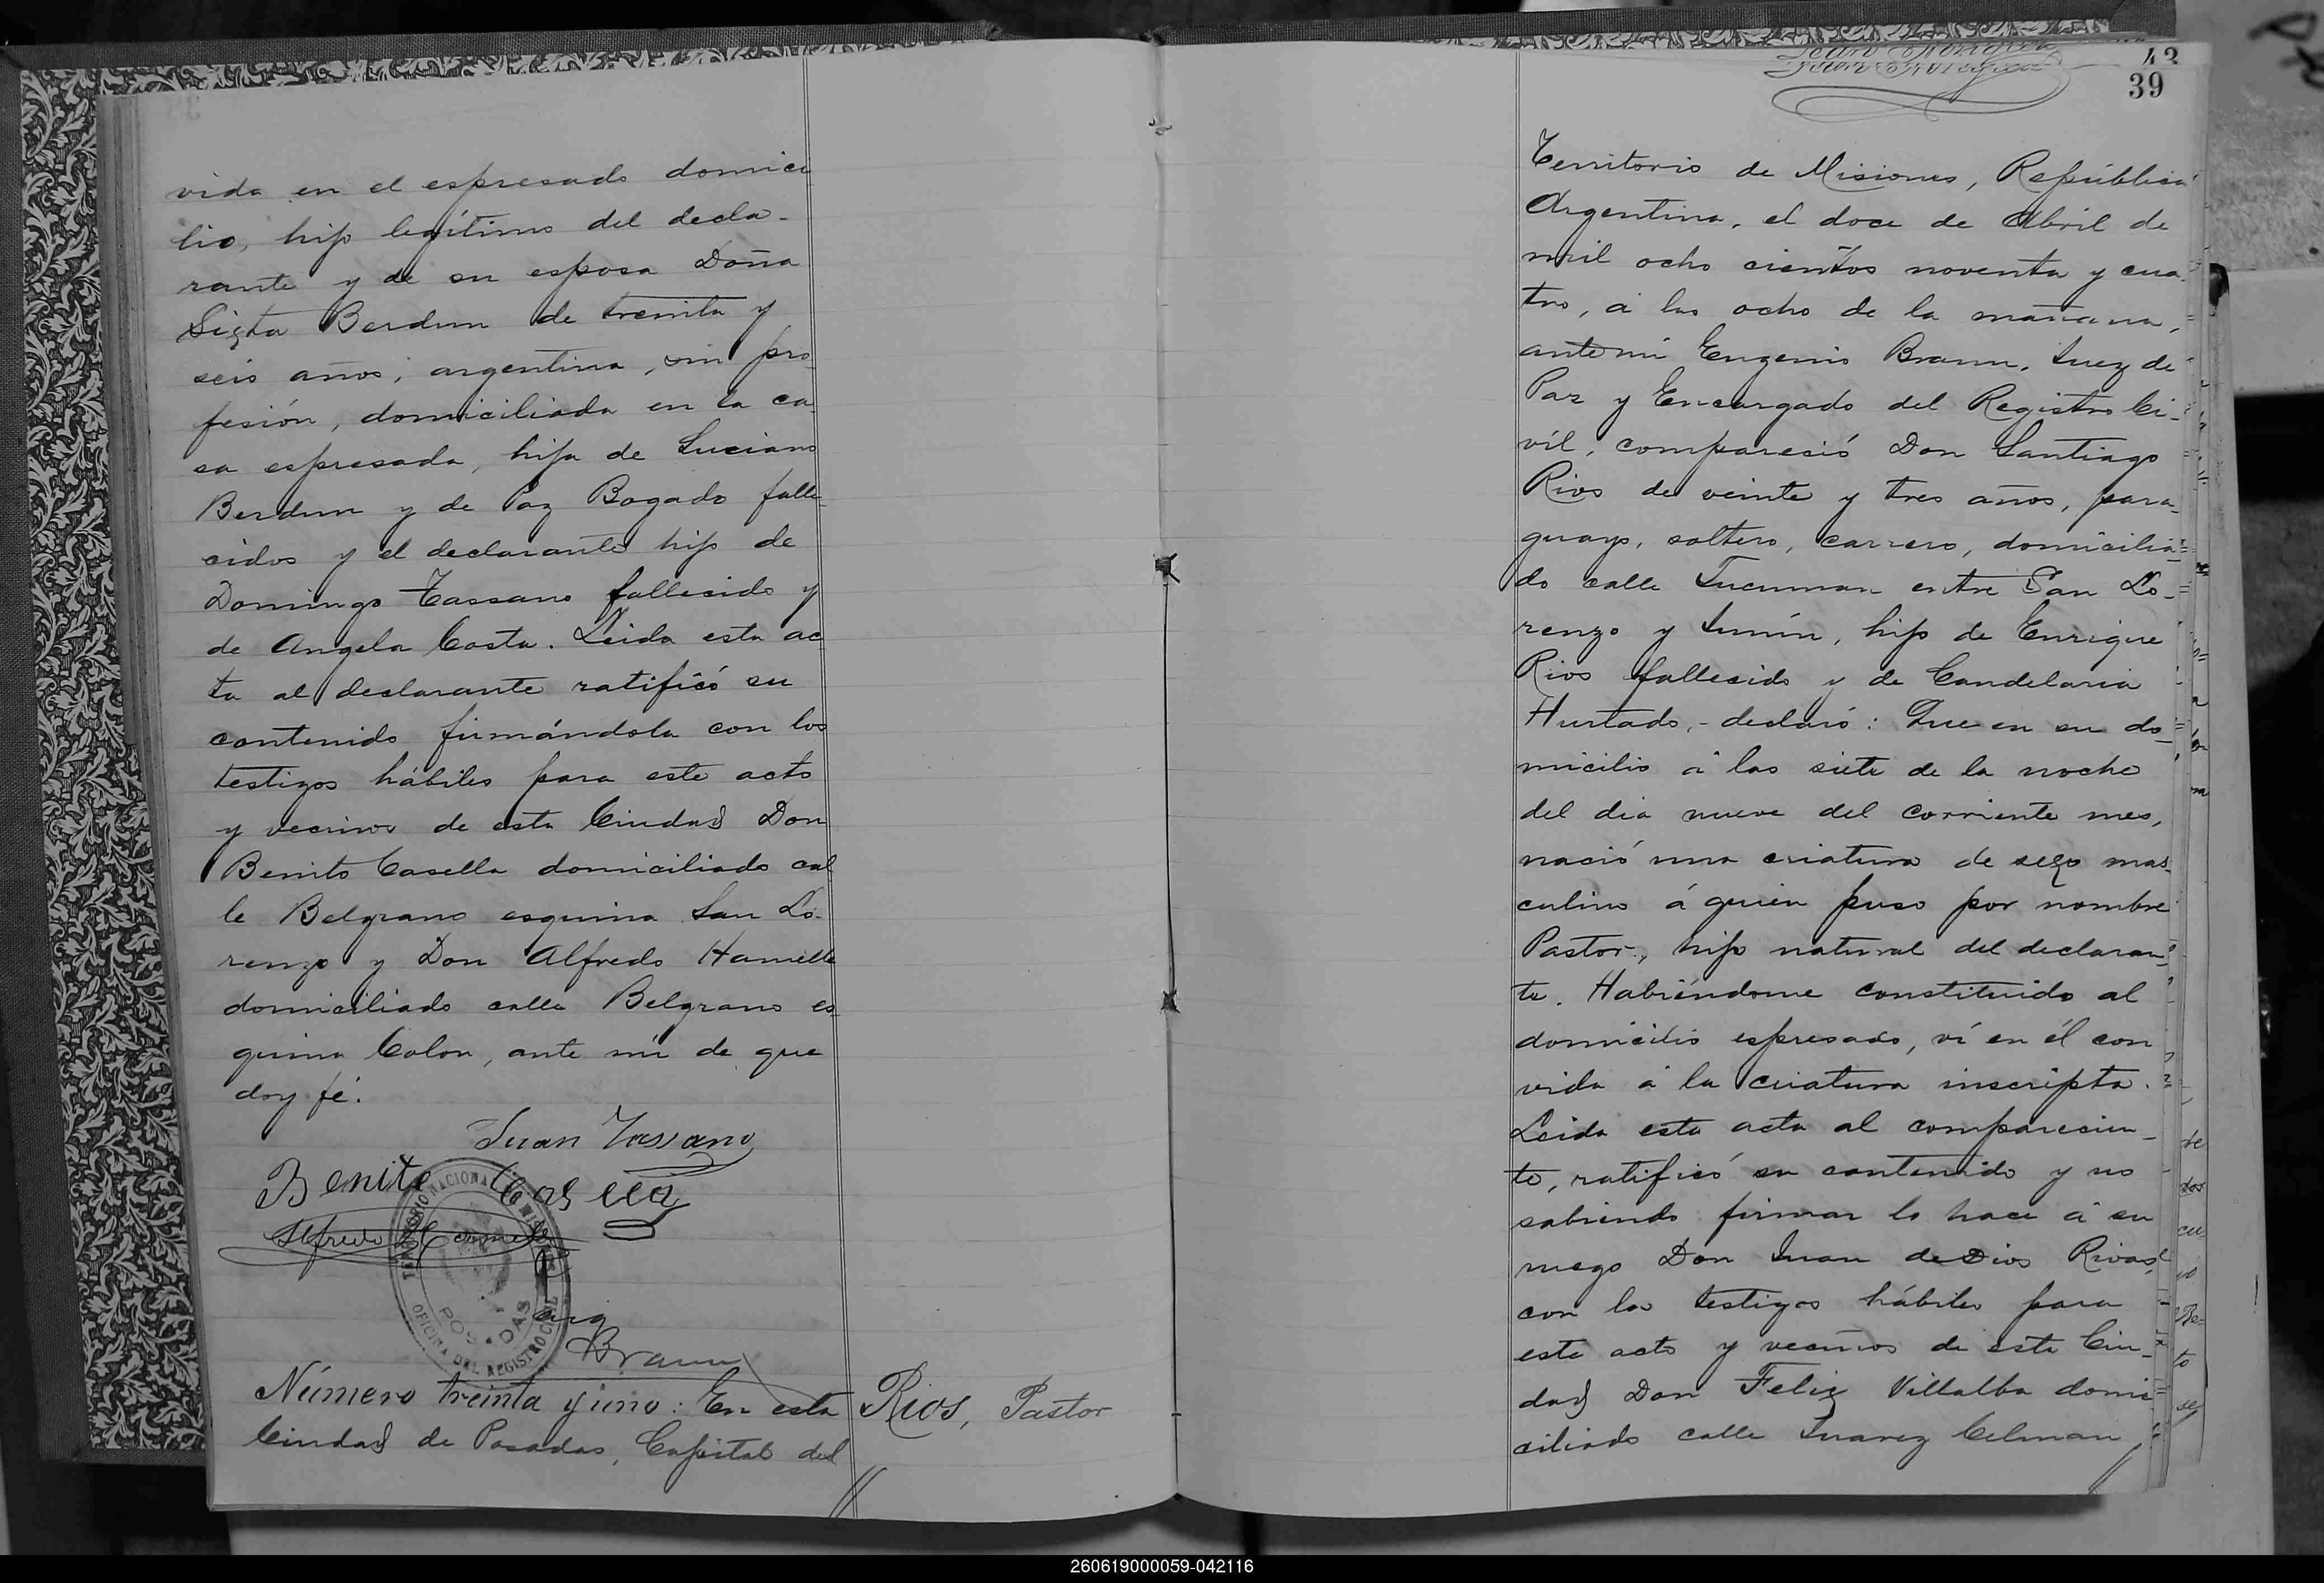 vida en el espresado domici
lio, hijo legítimo del decla-
rante y de su esposa Doña
Sixta Berdun de treinta y
seis años, argentina, sin pro-
fesión, domiciliada en la ca-
sa espresada, hija de Luciano
Berdun y de Paz Bogado falle-
cidos y el declarante hijo de
Domingo Tassano fallecido y
de Angela Costa. Leida esta ac
ta al declarante ratificó su
contenido firmándola con los
testigos hábiles para este acto
y vecinos de esta Ciudad Don
Benito Casella domiciliado cal
le Belgrano esquina San Lo-
renzo y Don Alfredo Hamelle
domiciliado calle Belgrano es-
quina Colon, ante mi de que
doy fé.
Juan Tassano
Benito Casella
Alfredo Hamelle
TERRITORIO NACIONAL MISIONES
POSADAS
OFICINA DEL REGISTRO CIVIL
Eug Braun
Número treinta y uno: En esta
Rios, Pastor
Ciudad de Posadas, Capital del
43
39
Territorio de Misiones, República
Argentina, el doce de Abril de
mil ocho cientos noventa y cua-
tro, á las ocho de la mañana,
ante mi Eugenio Braun, Juez de
Paz y Encargado del Registro Ci-
vil, compareció Don Santiago
Rios de veinte y tres años, para-
guayo, soltero, carrero, domicilia-
do calle Tucuman entre San Lo-
renzo y Junín, hijo de Enrique
Rios fallecido y de Candelaria
Hurtado,- declaró: Que en su do-
micilio á las siete de la noche
del dia nueve del corriente mes,
nació una criatura de sexo mas-
culino á quien puso por nombre
Pastor, hijo natural del declaran-
te. Habiéndome constituido al
domicilio espresado, ví en él con
vida á la criatura inscripta.
Leida esta acta al comparecien-
te, ratificó su contenido y no
sabiendo firmar lo hace á su
ruego Don Juan de Dios Rivas,
con los testigos hábiles para
este acto y vecinos de esta Ciu-
dad Don Felix Villalba domi-
ciliado calle Juarez Celman
260619000059-042116